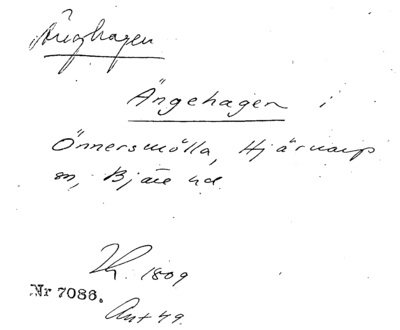 Änghagen
Ängehagen i
Önnersmölla, Hjärnarp
sn, Bjäre hd.
Lh. 1809
Nr 7086.
Ant 49.